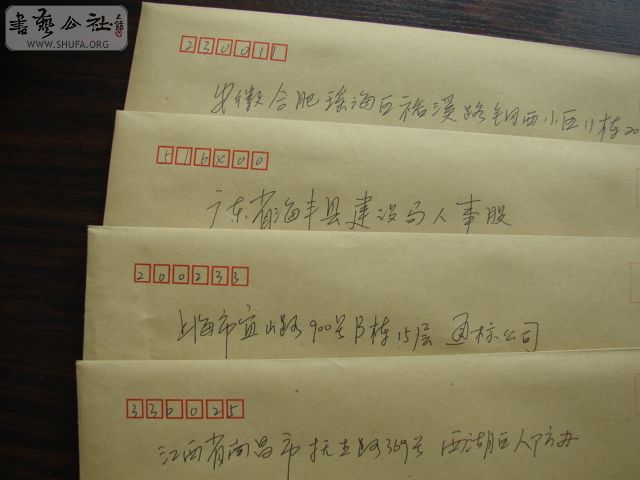 書藝公社
WWW.SHUFA.ORG
230011
安徽合肥瑶海区裕溪路钢西小区11栋20
516400
广东省海丰县建设局人事股
200233
上海市宜山路900号B栋15层 国标公司
330025
江西省南昌市抚生路369号 西湖区人防办